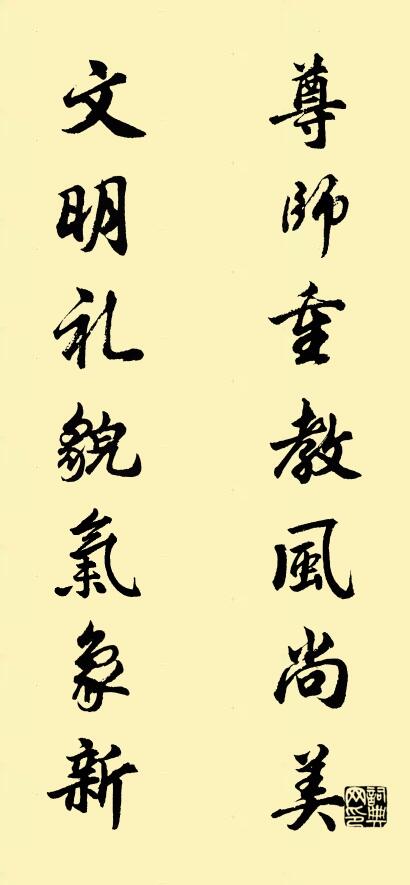 尊師重教風尚美
文明礼貌氣象新
詞典网印